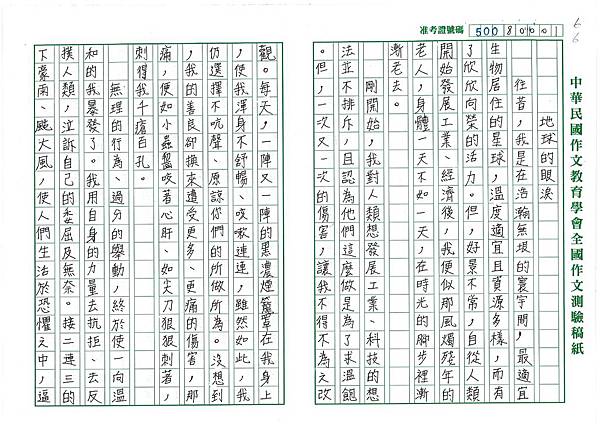 6/6
准考證號碼 50080001
中華民國作文教育學會全國作文測驗稿紙
地球的眼淚
往昔，我是在浩瀚無垠的寰宇間，最適宜
生物居住的星球，溫度適宜且資源多樣，而有
了欣欣向榮的活力。但，好景不常，自從人類
開始發展工業、經濟後，我便似那風燭殘年的
老人，身體一天不如一天，在時光的腳步裡漸
漸老去。
剛開始，我對人類想發展工業、科技的想
法並不排斥，且認為他們這麼做是為了求溫飽
。但，一次又一次的傷害，讓我不得不為之改
觀。每天，一陣又一陣的黑濃煙籠罩在我身上
，使我渾身不舒暢、咳嗽連連，雖然如此，我
仍選擇不吭聲、原諒你們的所做所為。沒想到
，我的善良卻換來遭受更多、更痛的傷害，那
痛，便如小蟲齧咬著心肝、如尖刀狠狠刺著，
刺得我千瘡百孔。
無理的行為、過分的舉動，終於使一向溫
和的我暴發了。我用自身的力量去抗拒、去反
撲人類，泣訴自己的委屈及無奈。接二連三的
下豪雨、颳大風，使人們生活於恐懼之中，逼